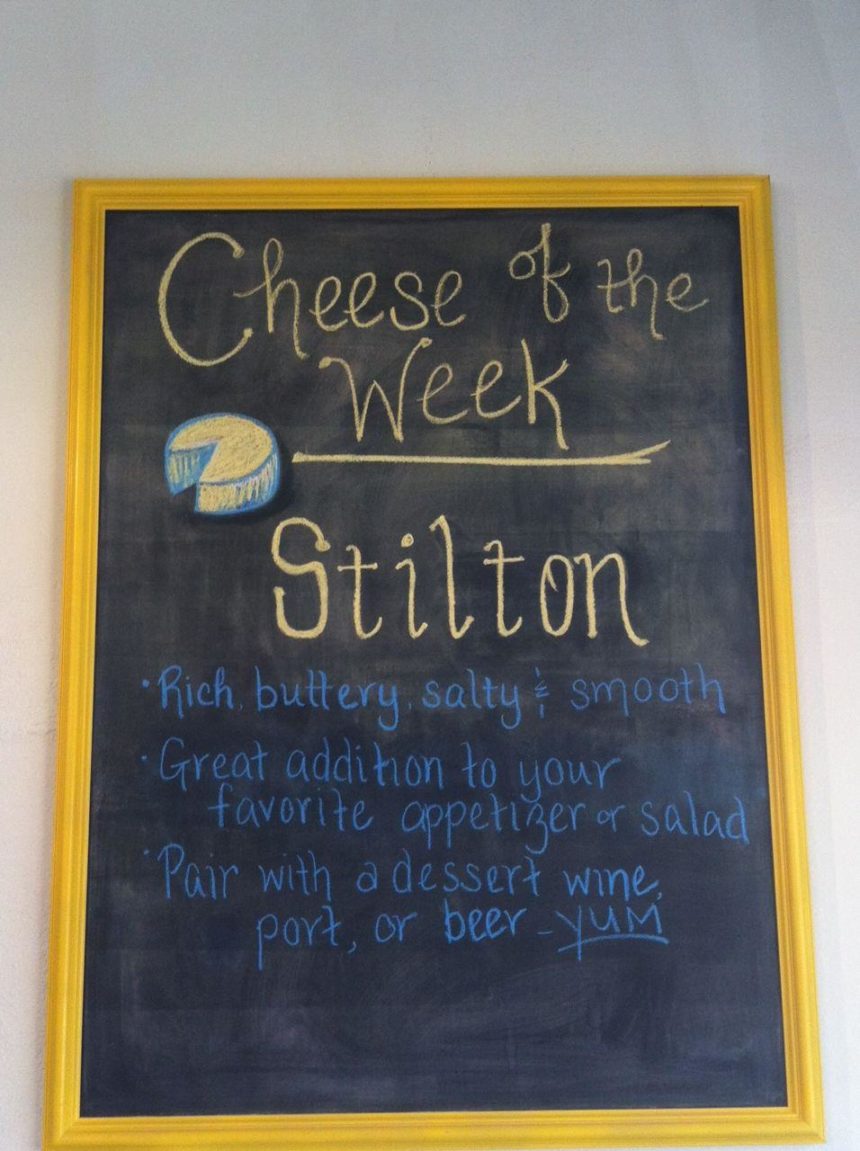 Cheese of the
Week
Stilton
• Rich, buttery, salty & smooth
• Great addition to your
favorite appetizer or salad
• Pair with a dessert wine,
port, or beer - YUM